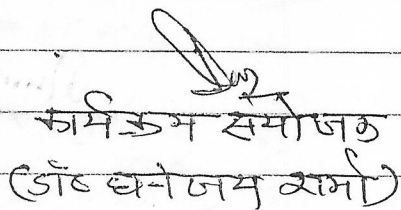 कार्यक्रम संयोजक
(डॉ० धनंजय शर्मा)